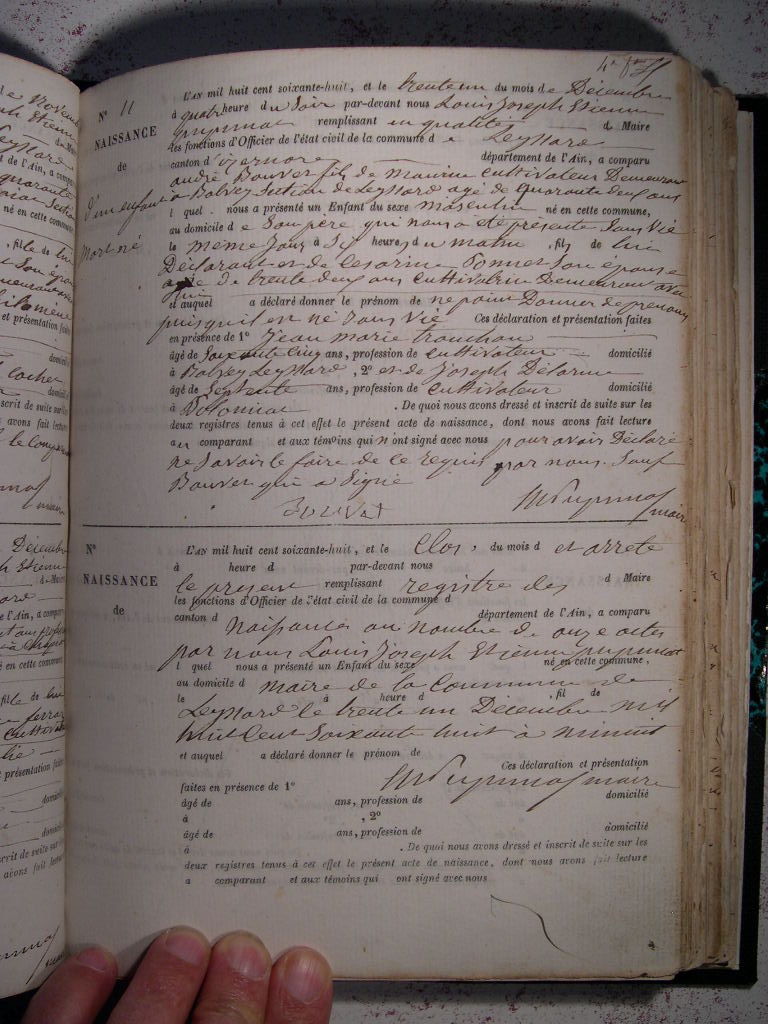 N° 11
NAISSANCE
de
d'un enfant
Mort né
L'AN mil huit cent soixante-huit, et le trente un du mois de Décembre
à quatr heure du Soir par-devant nous Louis Joseph Etienne
remplissant en qualité d Maire
les fonctions d'Officier de l'état civil de la commune de Leyssard
canton d'izernore département de l'Ain, a comparu
andré Bouvet fils de maurice cultivateur Demeurant
à Balvay Section de Leyssard agé de quarante deux ans
l quel nous a présenté un Enfant du sexe masculin né en cette commune,
au domicile de Son père qui nous a été présenté Sans Vie
le même Jour à Six heures, du matin, fils de lui
Déclarant et de Cesarine Son épouse
agée de trente deux ans cultivatrice Demeurant avec
lui
et auquel a déclaré donner le prénom de ne point Donner de prenom
puisqu'il est né Sans Vie Ces déclaration et présentation faites
en présence de 1° Jean marie tronchon
âgé de Soixante Cinq ans, profession de cultivateur domicilié
à Balvay Leyssard, 2° et de Joseph Délorme
âgé de Septente ans, profession de cultivateur domicilié
à . De quoi nous avons dressé et inscrit de suite sur les
deux registres tenus à cet effet le présent acte de naissance, dont nous avons fait lecture
au comparant et aux témoins qui n'ont signé avec nous pour avoir Déclaré
ne Savoir le faire de ce requis par nous. Sauf
Bouvet qui a Signé
Bouvet
maire
N°
NAISSANCE
de
L'AN mil huit cent soixante-huit, et le Clos, du mois d et arrete
à heure d par-devant nous
le present remplissant registre des d Maire
les fonctions d'Officier de l'état civil de la commune d
canton d département de l'Ain, a comparu
Naissances au nombre de onze actes
par nous Louis Joseph Etienne
l quel nous a présenté un Enfant du sexe né en cette commune,
au domicile d maire de la Commune de
le à heure d , fil de
Leyssard le trente un Décembre mil
huit Cent Soixante huit à minuit
et auquel a déclaré donner le prénom de
Ces déclaration et présentation
maire
faites en présence de 1° domicilié
âgé de ans, profession de
à , 2°
âgé de ans, profession de domicilié
à . De quoi nous avons dressé et inscrit de suite sur les
deux registres tenus à cet effet le présent acte de naissance, dont nous avons fait lecture
a comparant et aux témoins qui ont signé avec nous